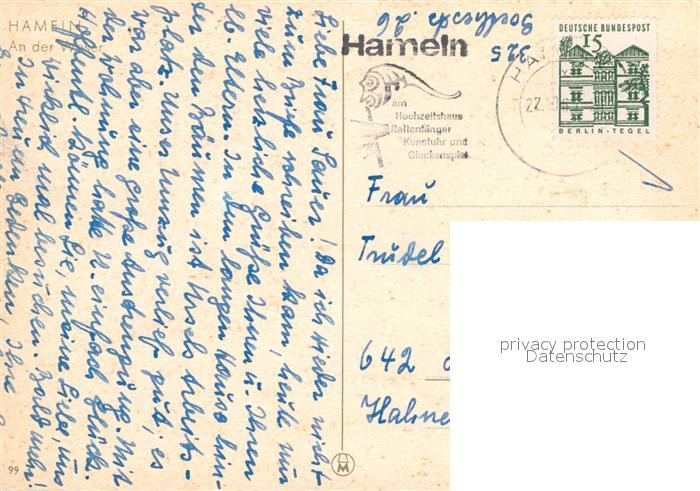 HAMELN
An der Weser
Liebe Frau Sauer! Da ich wieder nicht
zum Briefe schreiben kam, heute nur
viele herzliche Grüße Ihnen u. Ihren
lb. Eltern. In dem langen Hause hin-
ter den Bäumen ist Ursels Arbeits-
platz. Unser Umzug verlief gut, es
war aber eine große Anstrengung. Mit
der Wohnung hatte U. einfach Glück.
Hoffentl. können Sie, meine Liebe, uns
wirklich mal besuchen. Bald mehr!
In treuem Gedenken, Ihre
99
325
Hameln
am
Hochzeitshaus
Rattenfänger
Kunstuhr und
Glockenspiel
HA
22.
DEUTSCHE BUNDESPOST
15
BERLIN-TEGEL
Frau
Trudel
642
Hahne
privacy protection
Datenschutz